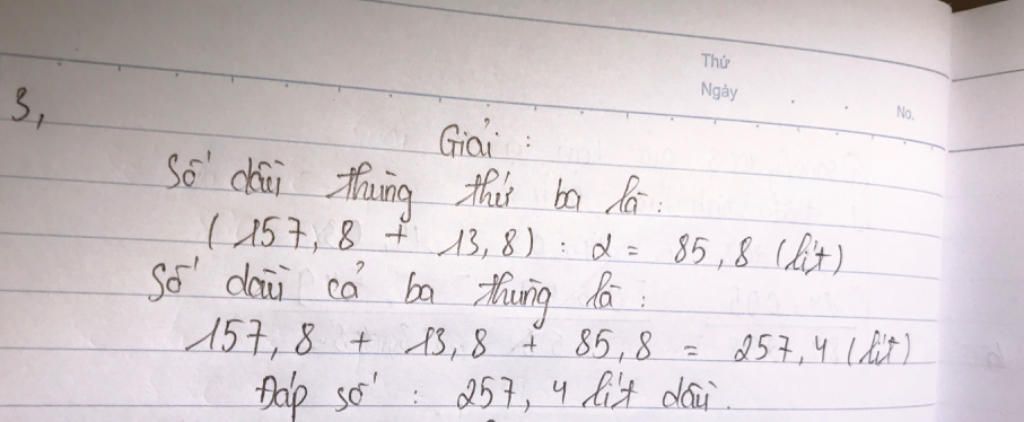 Thứ
Ngày
No.
3,
Giải :
Số dầu thùng thứ ba là :
( 157, 8 + 13, 8 ) : 2 = 85, 8 (lít)
Số dầu cả ba thùng là :
157, 8 + 13, 8 + 85, 8 = 257, 4 (lít)
Đáp số : 257, 4 lít dầu.